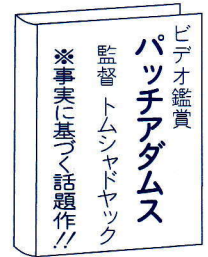 ビデオ鑑賞
パッチアダムス
監督 トムシャドヤック
※事実に基づく話題作!!